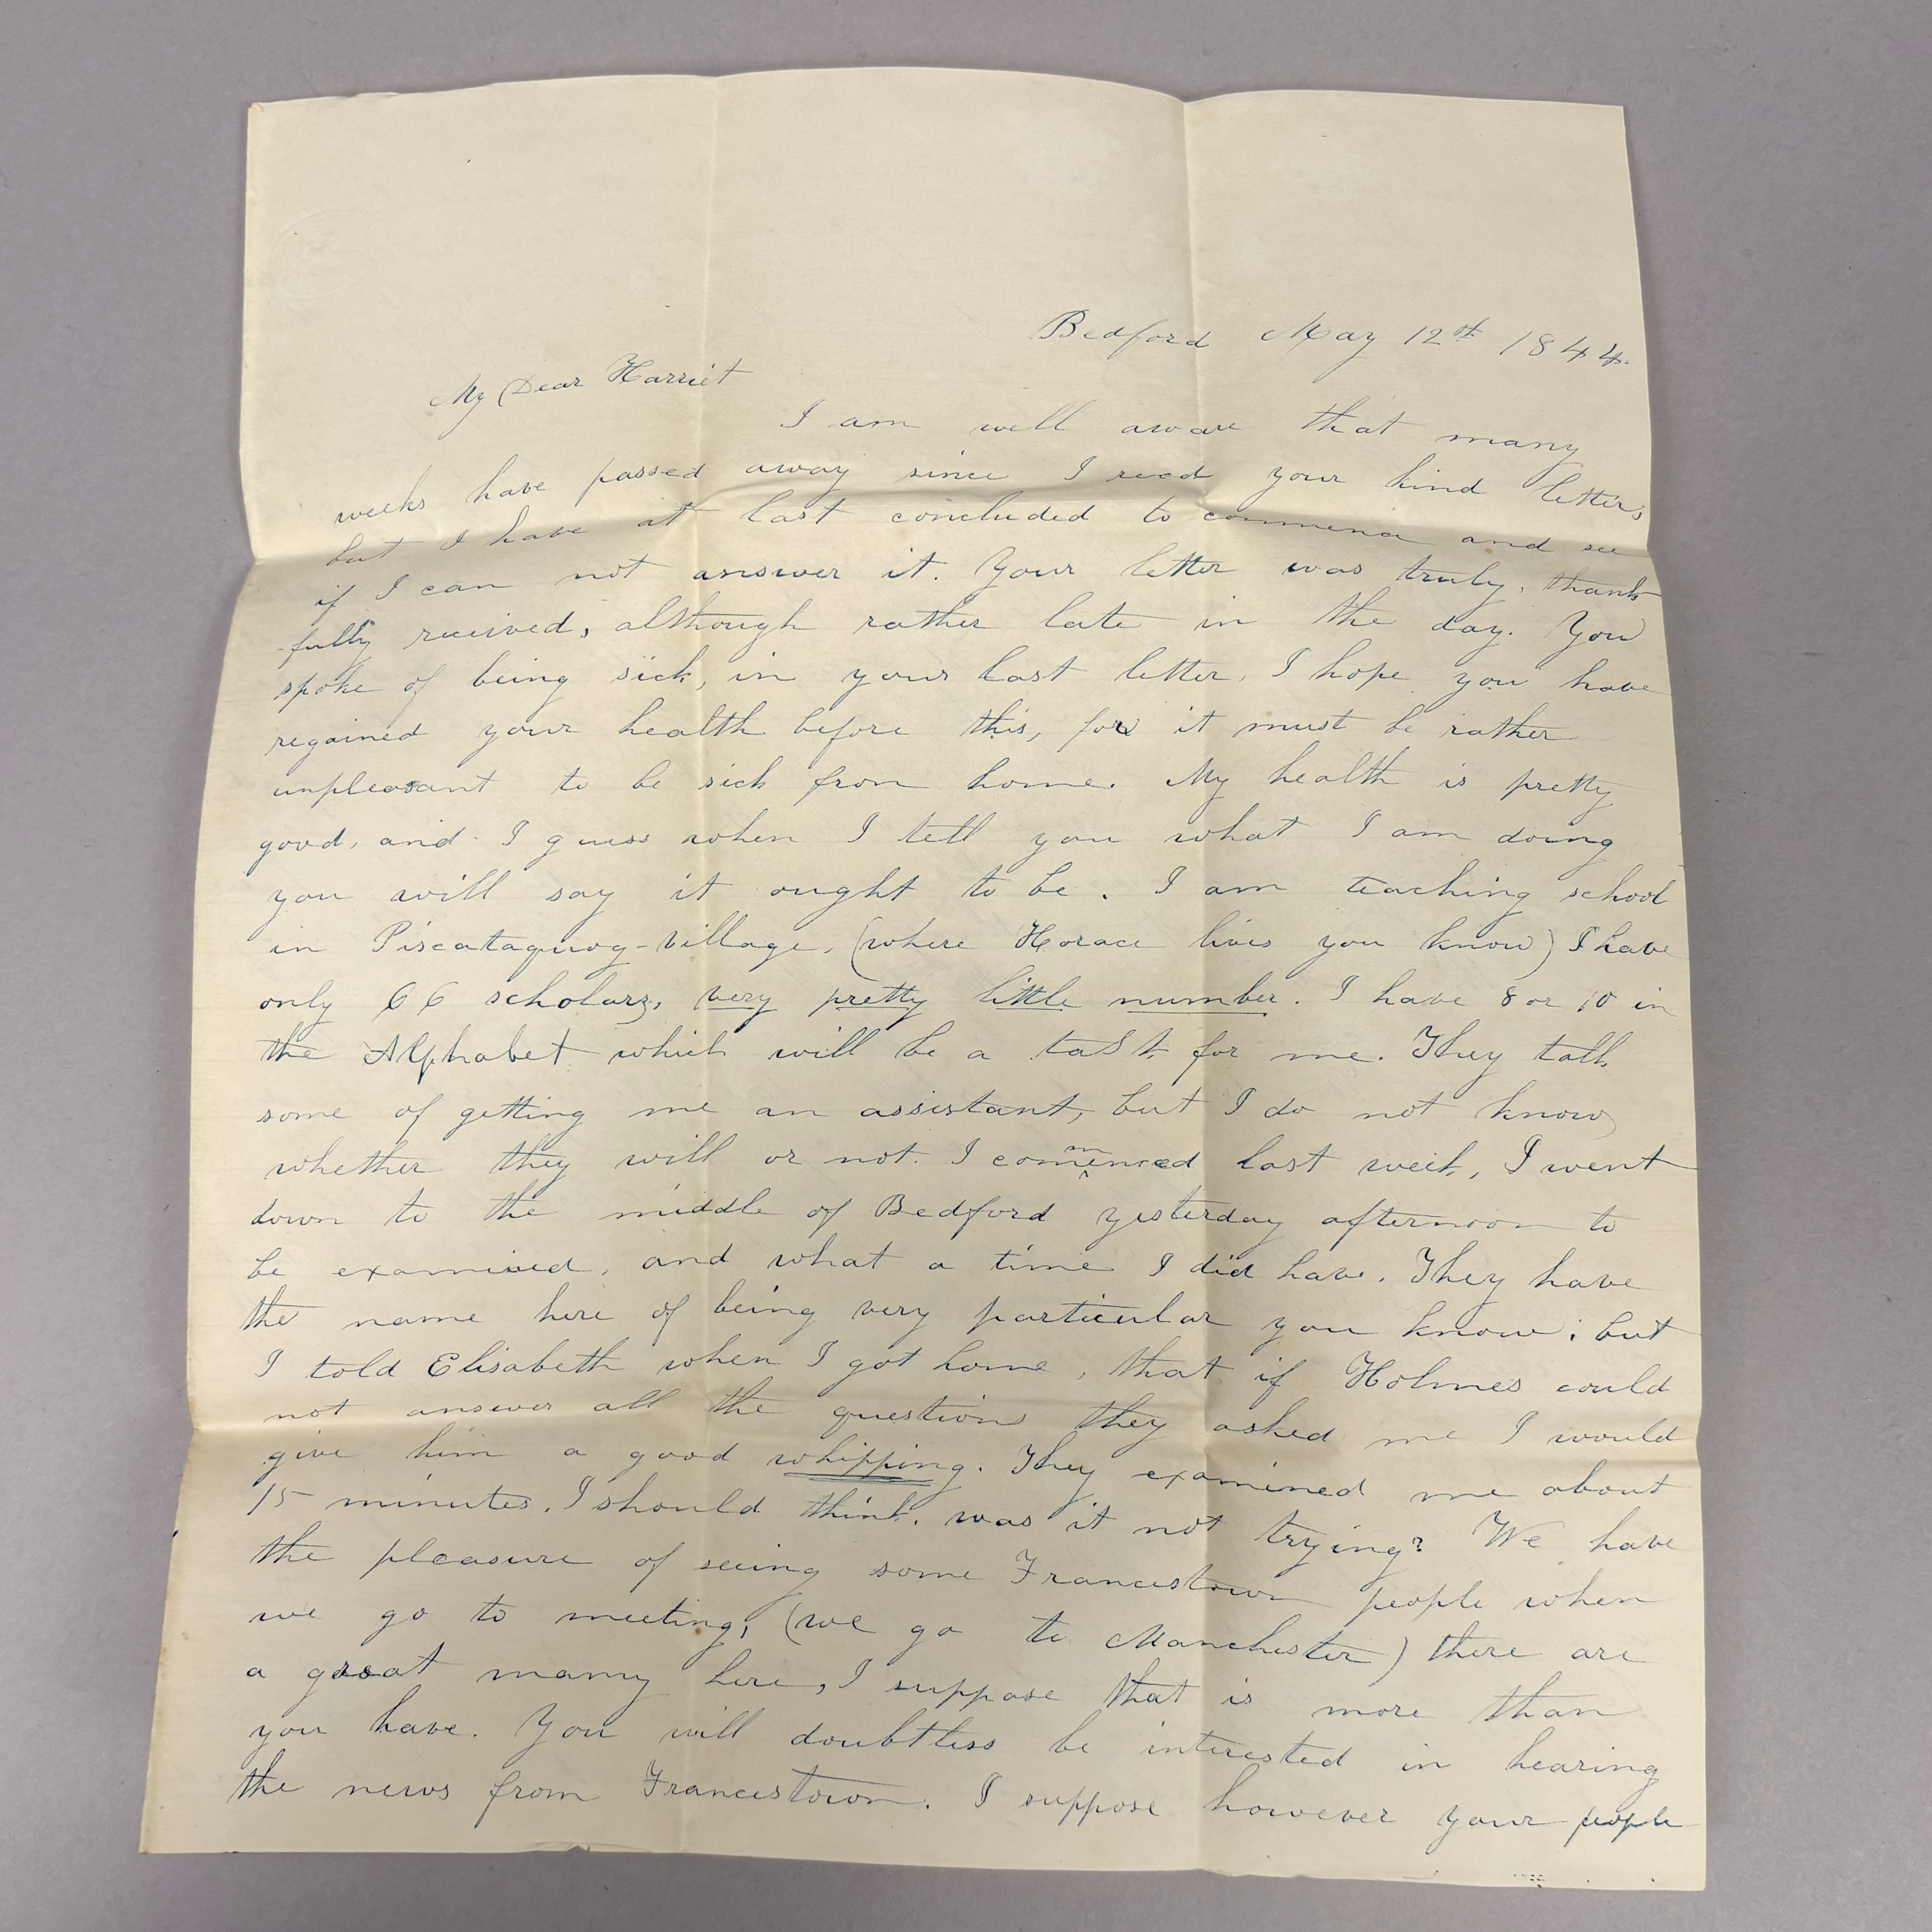 Bedford May 12th 1844.
My Dear Harriet
I am well aware that many
weeks have passed away since I recd your kind letter,
but I have at last concluded to commence and see
if I can not answer it. Your letter was truly, thank-
-fully received, although rather late in the day. You
spoke of being sick, in your last letter, I hope you have
regained your health before this, for it must be rather
unpleasant to be sick from home. My health is pretty
good, and I guess when I tell you what I am doing
you will say it ought to be. I am teaching school
in Piscataquog-village, (where Horace lives you know) I have
only 66 scholars, very pretty little number. I have 8 or 10 in
the Alphabet which will be a task for me. They talk
some of getting me an assistant, but I do not know
whether they will or not. I commenced last week, I went
down to the middle of Bedford yesterday afternoon to
be examined, and what a time I did have. They have
the name here of being very particular you know; but
I told Elisabeth when I got home, that if Holmes could
not answer all the questions they asked me I would
give him a good whipping. They examined me about
15 minutes, I should think, was it not trying? We have
the pleasure of seeing some Francestown people when
we go to meeting, (we go to Manchester) there are
a great many here, I suppose that is more than
you have. You will doubtless be interested in hearing
the news from Francestown. I suppose however your people